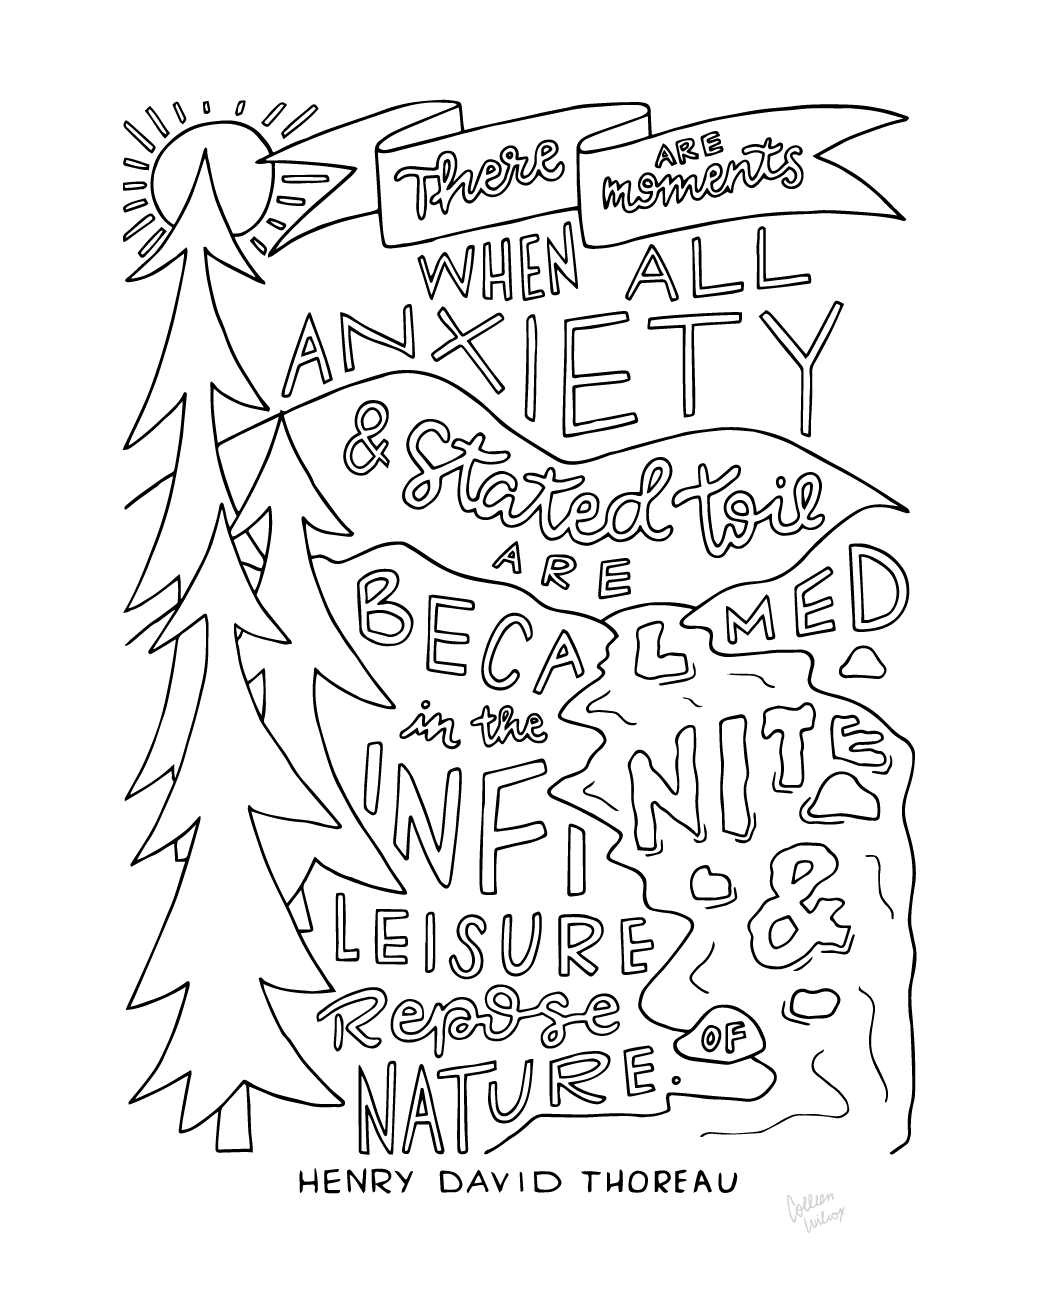 There ARE moments
WHEN ALL
ANXIETY
& Stated toil
ARE
BECALMED
in the
INFINITE
LEISURE &
Repose OF
NATURE.
HENRY DAVID THOREAU
Colleen
Wilcox